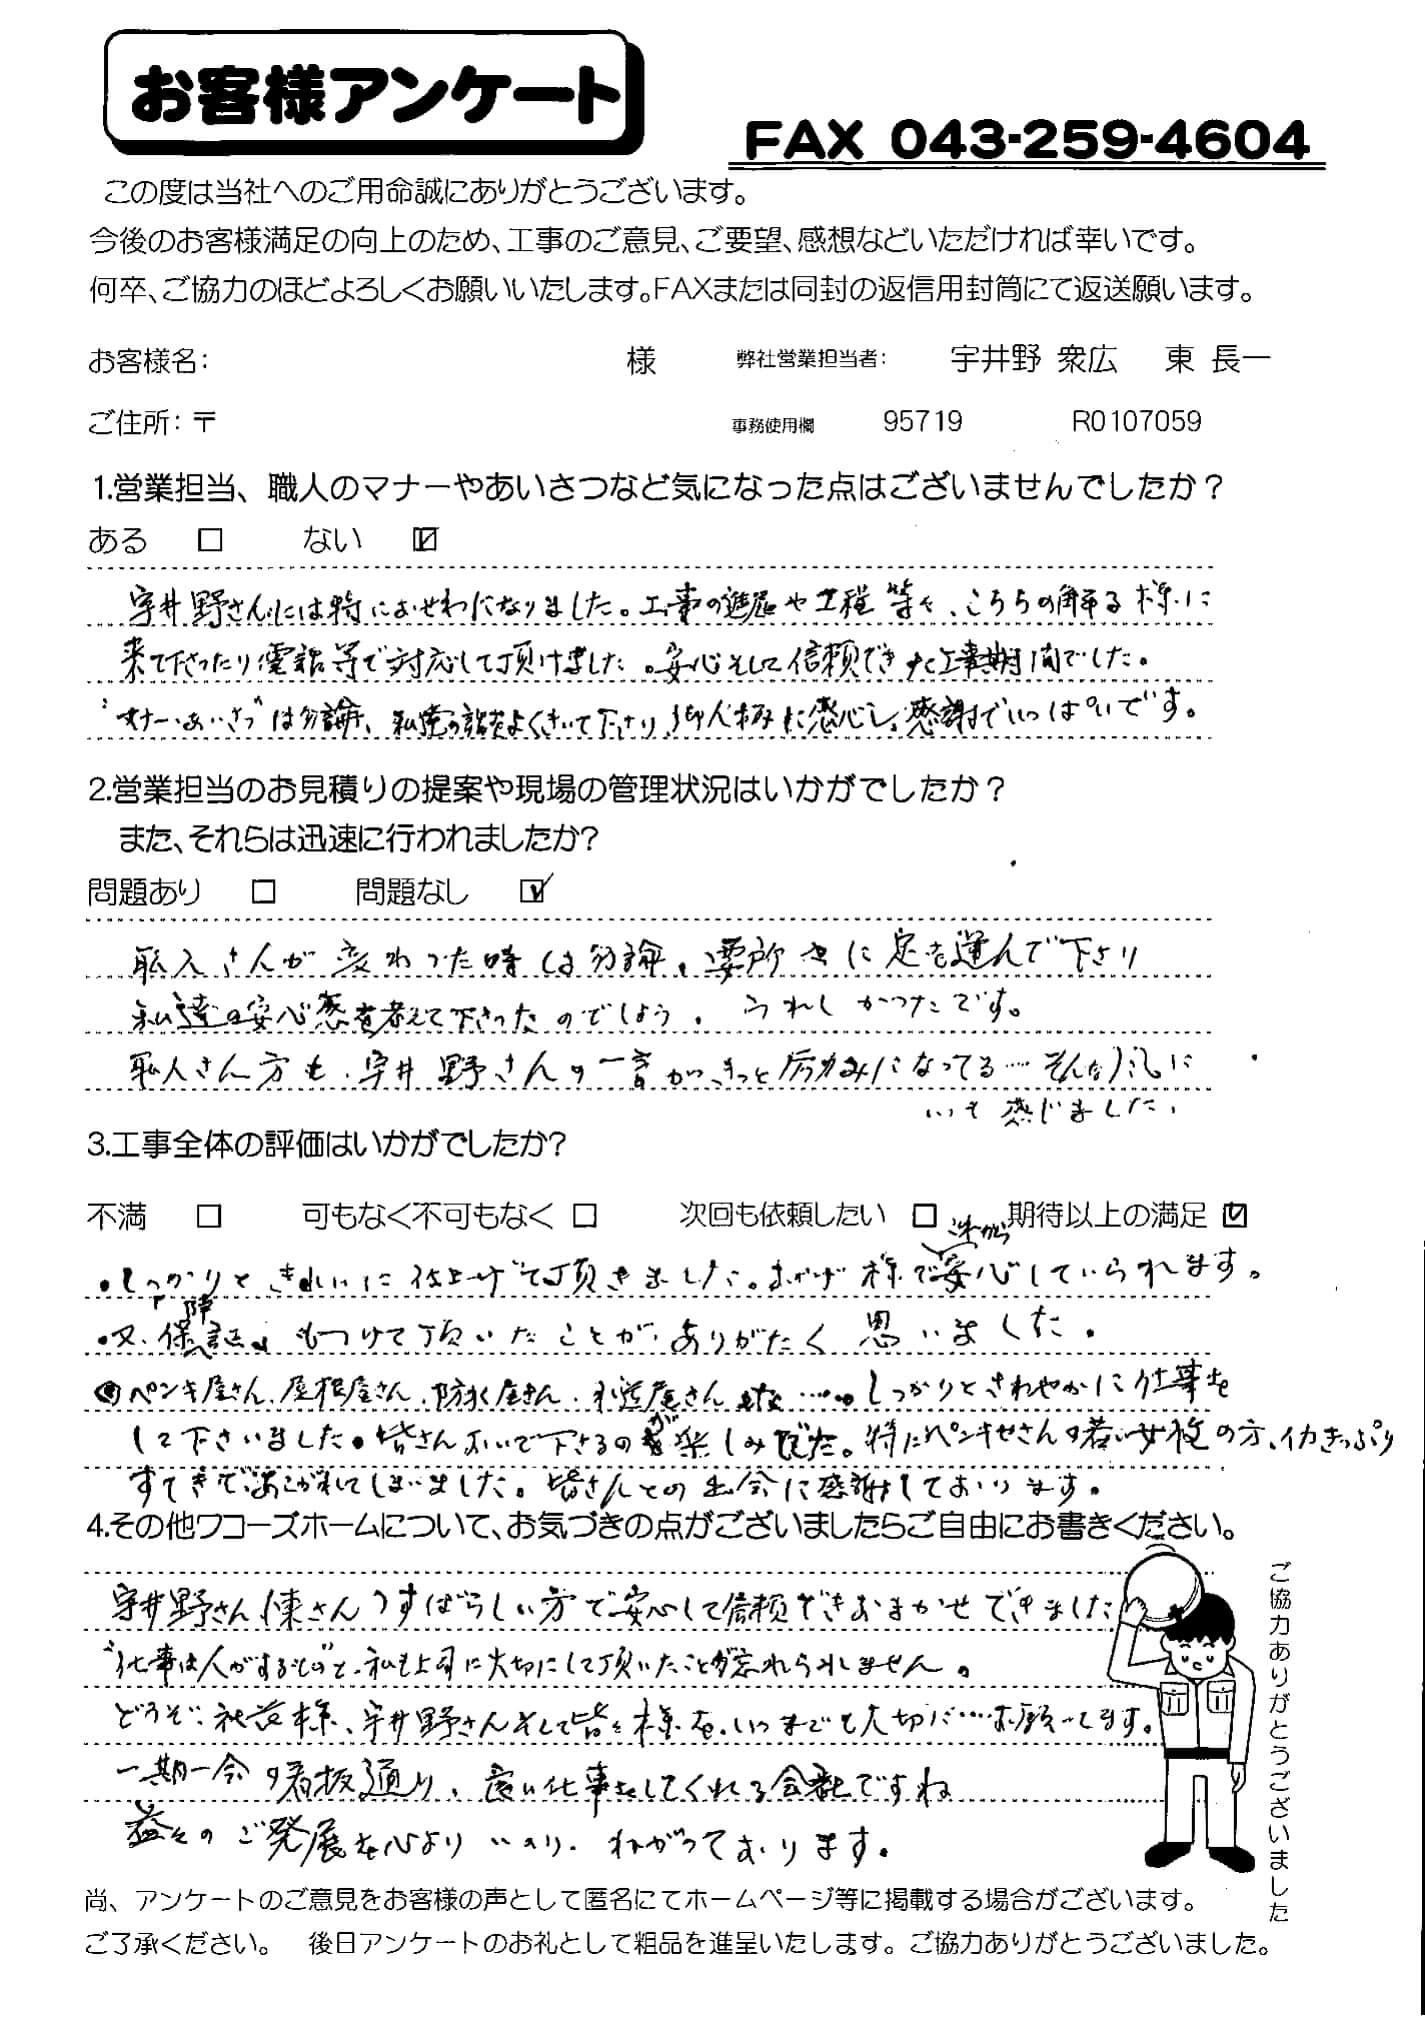 お客様アンケート
FAX 043-259-4604
この度は当社へのご用命誠にありがとうございます。
今後のお客様満足の向上のため、工事のご意見、ご要望、感想などいただければ幸いです。
何卒、ご協力のほどよろしくお願いいたします。FAXまたは同封の返信用封筒にて返送願います。
お客様名: 様 弊社営業担当者: 宇井野 衆広 東 長一
ご住所:〒 事務使用欄 95719 R0107059
1.営業担当、職人のマナーやあいさつなど気になった点はございませんでしたか？
ある □ ない ☑
宇井野さんには特におせわになりました。工事の進展や工程等を、こちらの解る様に
来て下さったり電話等で対応して頂けました。安心そして信頼できた工事期間でした。
"マナー、あいさつ"は勿論、私達の話をよくきいて下さり、職人柄に感心し、感謝でいっぱいです。
2.営業担当のお見積りの提案や現場の管理状況はいかがでしたか？
また、それらは迅速に行われましたか?
問題あり □ 問題なし ☑
職人さんが変わった時は勿論、要所々に足を運んで下さり
私達の安心感を考えて下さったのでしょう。うれしかったです。
職人さん方も、宇井野さんの一言が、きっと励みになってる…そんな風に
いつも感じました。
3.工事全体の評価はいかがでしたか?
不満 □ 可もなく不可もなく □ 次回も依頼したい □ 期待以上の満足 ☑
・しっかりときれいに仕上げて頂きました。おかげ様でこれから安心していられます。
・又、「保証」もつけて頂いたことが、ありがたく思いました。
ペンキ屋さん、屋根屋さん、防水屋さん、 しっかりとさわやかに仕事を
して下さいました。皆さんおいで下さるのが楽しみでした。特にペンキやさんの若い女性の方、イカきっぷり
すてきで、あこがれてしまいました。皆さんとの出会に感謝しております。
4.その他ワコーズホームについて、お気づきの点がございましたらご自由にお書きください。
宇井野さん(東さん)すばらしい方で安心して信頼できおまかせできました
"仕事は人がするもの"と、私も上司に大切にして頂いたことが忘れられません。
どうぞ、社長様、宇井野さんそして皆々様を、いつまでも大切に…お願いします。
一期一会の看板通り、良い仕事をしてくれる会社ですね
益々のご発展を心よりいのり、ねがっております。
ご協力ありがとうございました
尚、アンケートのご意見をお客様の声として匿名にてホームページ等に掲載する場合がございます。
ご了承ください。 後日アンケートのお礼として粗品を進呈いたします。ご協力ありがとうございました。